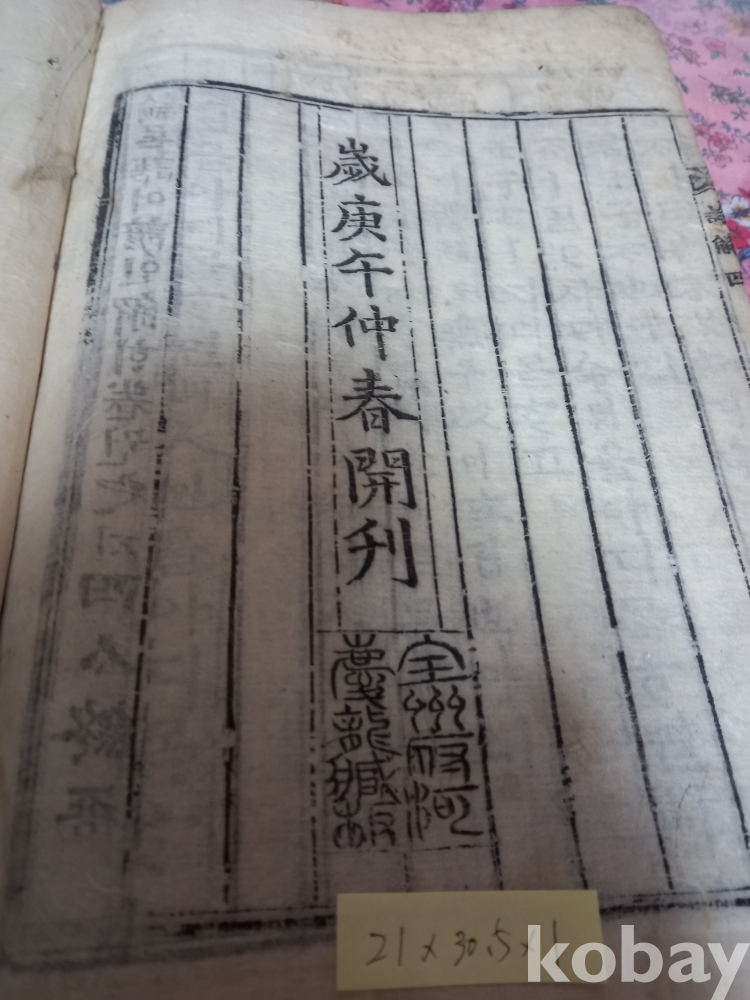 解 四
歲庚午仲春開刊
全州府河
慶龍藏板
21 x 30.5 x 1
kobay